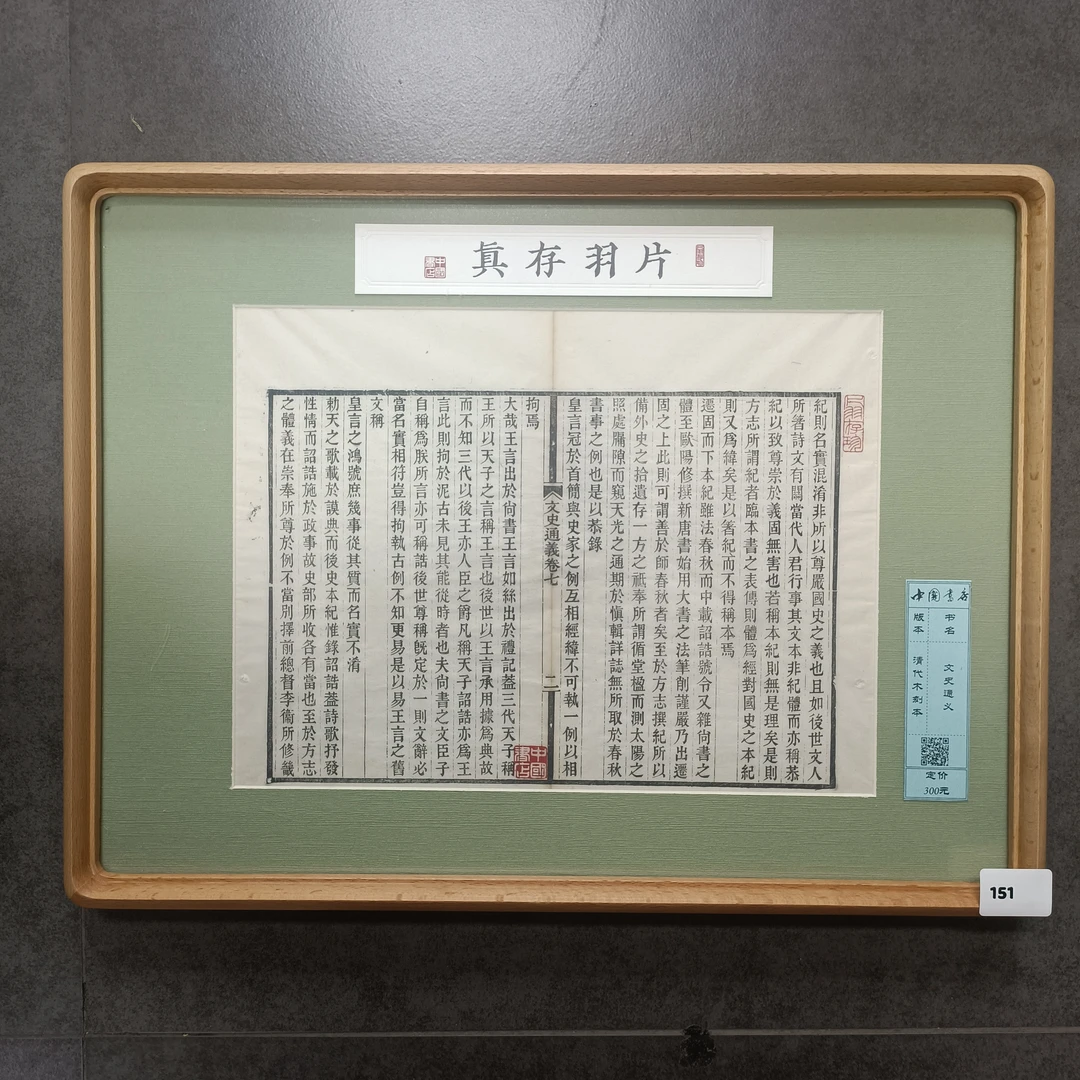 片羽存真
中國書店
片羽存珍
紀則名實混淆非所以尊嚴國史之義也且如後世文人
所著詩文有關當代人君行事其文本非紀體而亦稱恭
紀以致尊崇於義固無害也若稱本紀則無是理矣是則
方志所謂紀者臨本書之表傳則體爲經對國史之本紀
則又爲緯矣是以著紀而不得稱本焉
遷固而下本紀雖法春秋而中載詔誥號令又雜尚書之
體至歐陽修撰新唐書始用大書之法筆削謹嚴乃出遷
固之上此則可謂善於師春秋者矣至於方志撰紀所以
備外史之拾遺存一方之祗奉所謂循堂楹而測太陽之
照處牖隙而窺天光之通期於愼輯詳誌無所取於春秋
書事之例也是以恭錄
皇言冠於首簡與史家之例互相經緯不可執一例以相
文史通義卷七
二
中國書店
拘焉
大哉王言出於尚書王言如絲出於禮記葢三代天子稱
王所以天子之言稱王言也後世以王言承用據爲典故
而不知三代以後王亦人臣之爵凡稱天子詔誥亦爲王
言此則拘於泥古未見其能從時者也夫尚書之文臣子
自稱爲朕所言亦可稱誥後世尊稱旣定於一則文辭必
當名實相符豈得拘執古例不知更易是以易王言之舊
文稱
皇言之鴻號庶幾事從其質而名實不淆
勅天之歌載於謨典而後史本紀惟錄詔誥葢詩歌抒發
性情而詔誥施於政事故史部所收各有當也至於方志
之體義在崇奉所尊於例不當別擇前總督李衞所修畿
中國書店
书名 文史通义
版本 清代木刻本
定价
300元
151